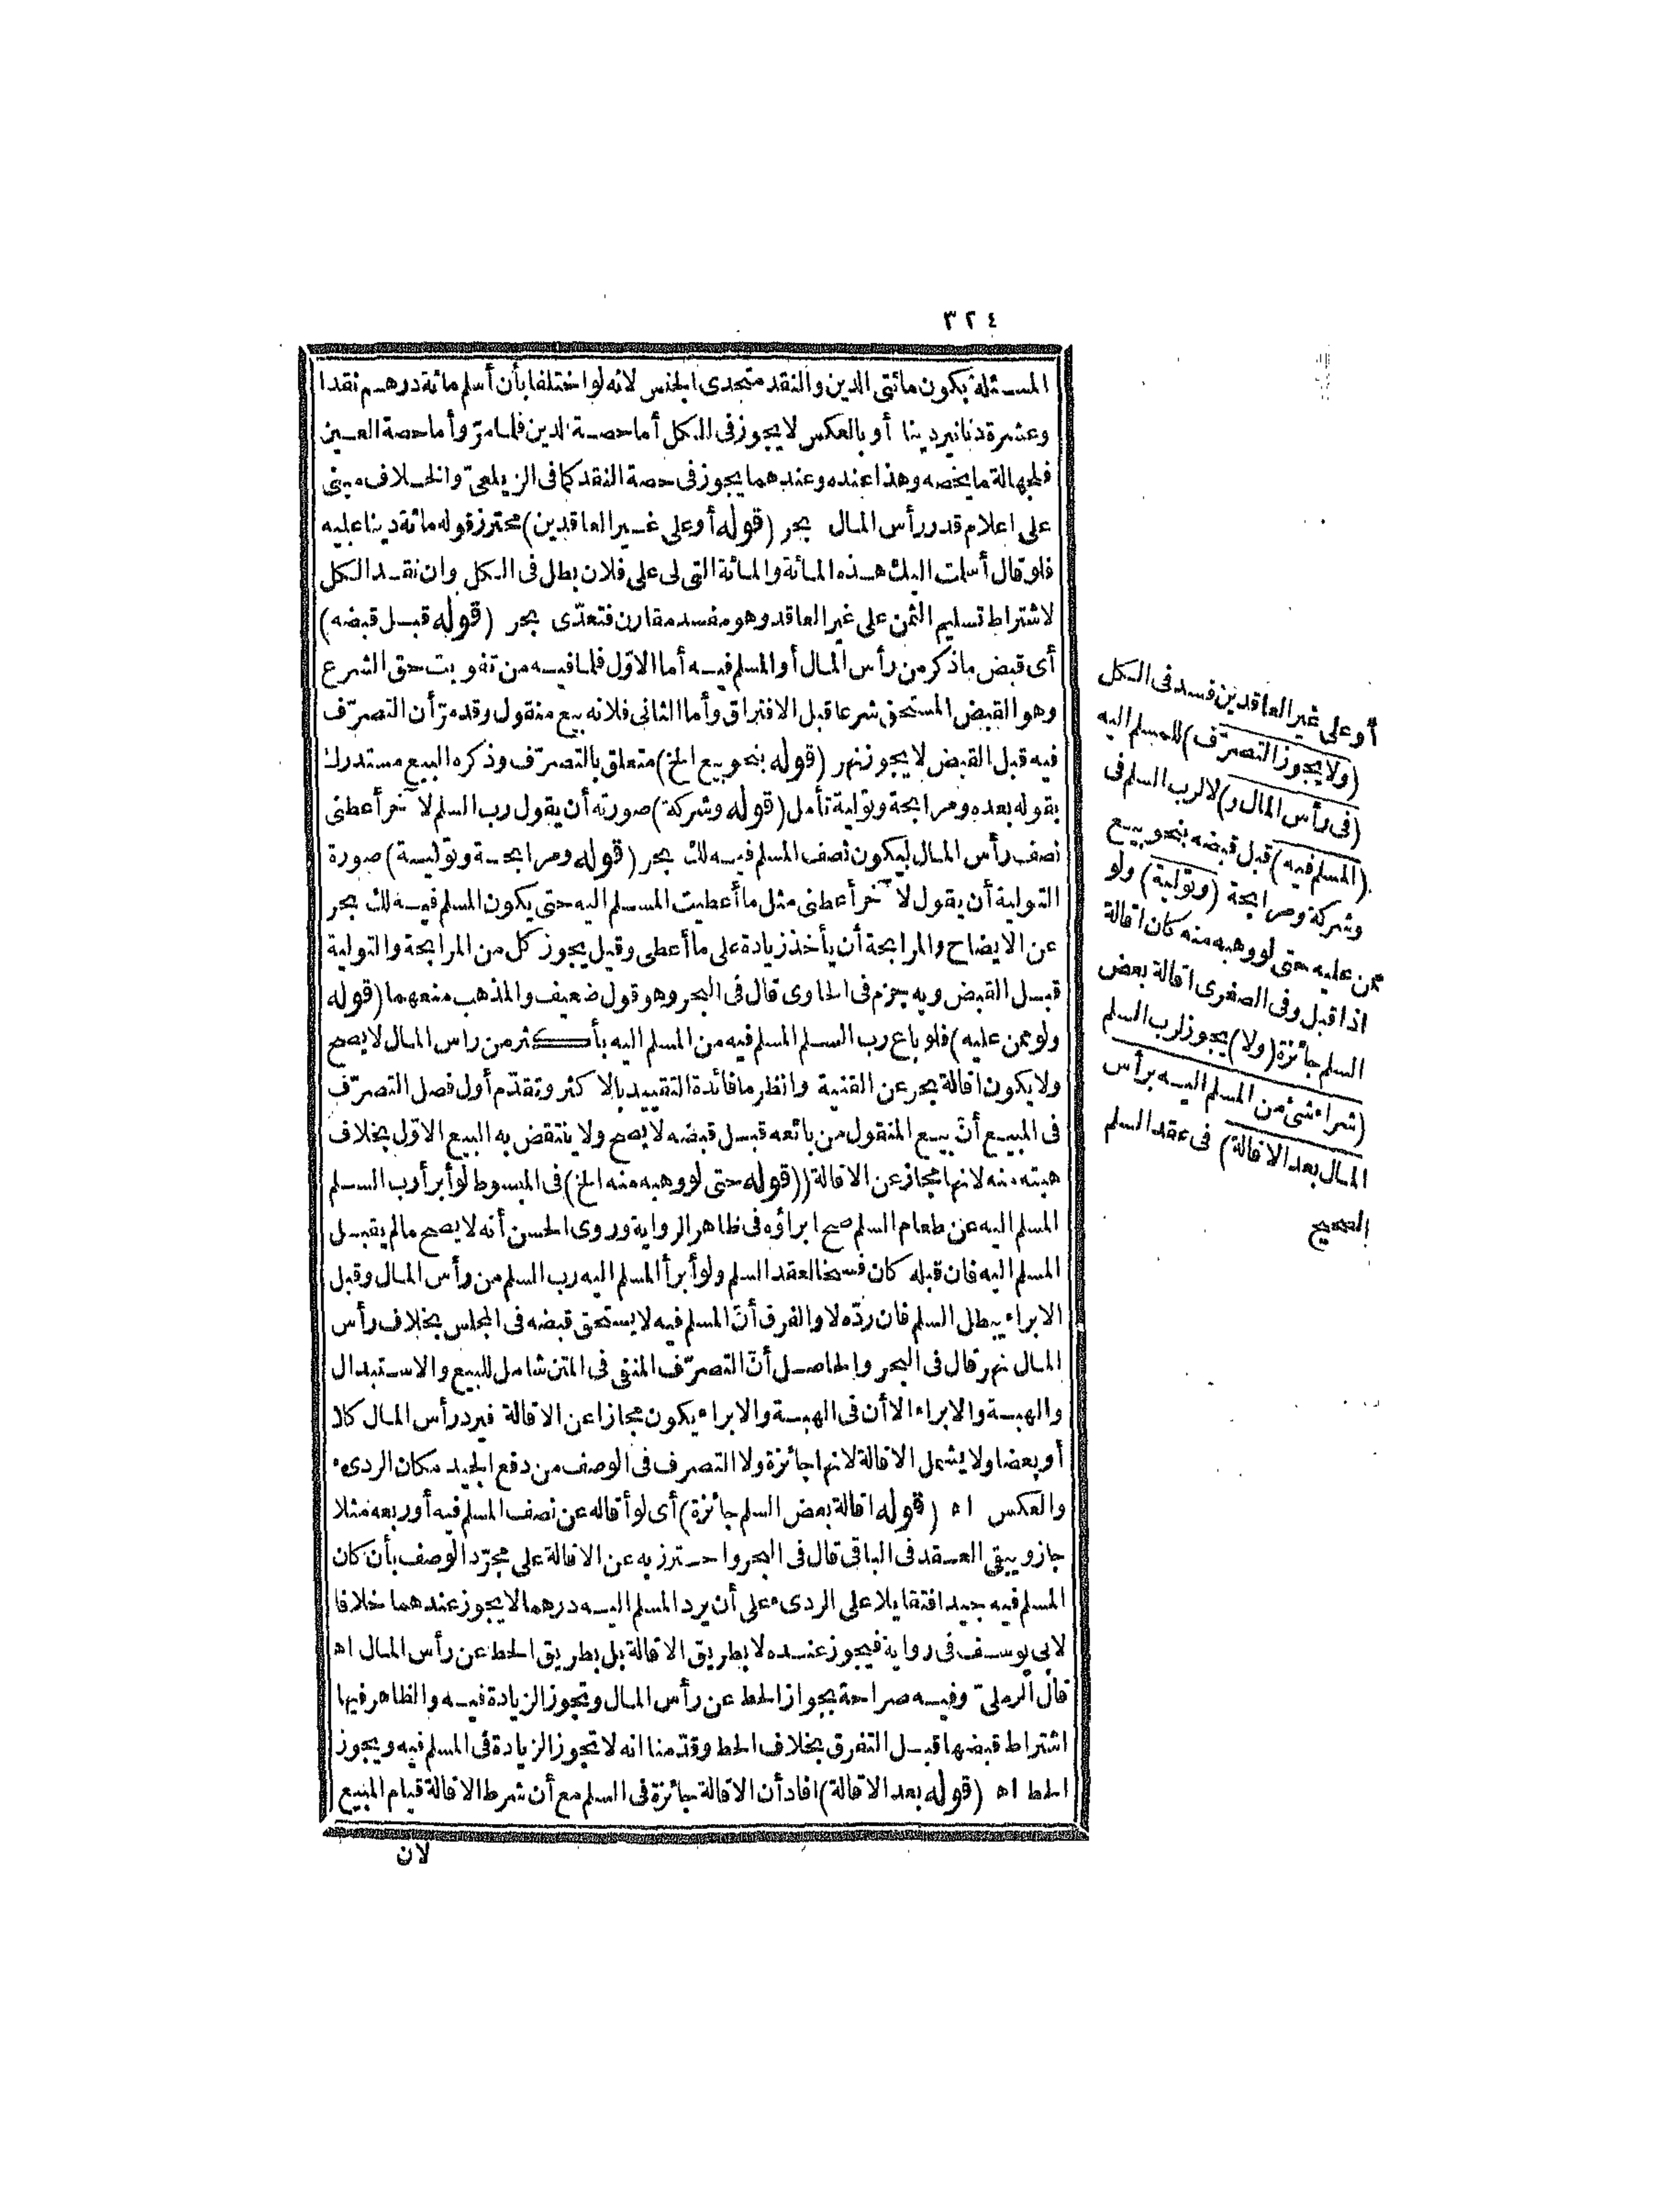 ٣٢٤
المسئلة بكون مائتى الدين والنقد متحدى الجنس لانه لو اختلفا بأن أسلم مائة درهم نقدا
وعشرة دنانير دينا أو بالعكس لا يجوز فى الكل أما حصة الدين فلما مرّ وأما حصة العين
فلجهالة ما يخصه وهذا عنده وعندهما يجوز فى حصة النقد كما فى الزيلعىّ والخلاف مبنى
على اعلام قدر رأس المال بحر (قوله أو على غير العاقدين) محترز قوله مائة دينا عليه
فلو قال أسلمت اليك هذه المائة والمائة التى لى على فلان بطل فى الكل وان نقد الكل
لاشتراط تسليم الثمن على غير العاقد وهو مفسد مقارن فتعدّى بحر (قوله قبل قبضه)
أى قبض ما ذكر من رأس المال أو المسلم فيه أما الاوّل فلما فيه من تفويت حق الشرع
وهو القبض المستحق شرعا قبل الافتراق وأما الثانى فلانه بيع منقول وقد مرّ أن التصرّف
فيه قبل القبض لا يجوز نهر (قوله بنحو بيع الخ) متعلق بالتصرّف وذكره البيع مستدرك
بقوله بعده ومرابحة وتولية تأمل (قوله وشركة) صورته أن يقول رب السلم لآخر أعطنى
نصف رأس المال ليكون نصف المسلم فيه لك بحر (قوله ومرابحة وتولية) صورة
التولية أن يقول لآخر أعطنى مثل ما أعطيت المسلم اليه حتى يكون المسلم فيه لك بحر
عن الايضاح والمرابحة أن يأخذ زيادة على ما أعطى وقيل يجوز كل من المرابحة والتولية
قبل القبض وبه جزم فى الحاوى قال فى البحر وهو قول ضعيف والمذهب منعهما (قوله
ولو ممن عليه) فلو باع رب السلم المسلم فيه من المسلم اليه بأكثر من راس المال لا يصح
ولا يكون اقالة بحر عن القنية وانظر ما فائدة التقييد بالاكثر وتقدّم أول فصل التصرّف
فى المبيع أنّ بيع المنقول من بائعه قبل قبضه لا يصح ولا ينتقض به البيع الاوّل بخلاف
هبته منه لانها مجاز عن الاقالة ((قوله حتى لو وهبه منه الخ) فى المبسوط لو أبرأ رب السلم
المسلم اليه عن طعام السلم صح ابراؤه فى ظاهر الرواية وروى الحسن أنه لا يصح ما لم يقبل
المسلم اليه فان قبله كان فسخا لعقد السلم ولو أبرأ المسلم اليه رب السلم من رأس المال وقبل
الابراء يبطل السلم فان ردّه لا والفرق أنّ المسلم فيه لا يستحق قبضه فى المجلس بخلاف رأس
المال نهر قال فى البحر والحاصل أنّ التصرّف المنفى فى المتن شامل للبيع والاستبدال
والهبة والابراء الا أن فى الهبة والابراء يكون مجازا عن الاقالة فيرد رأس المال كلا
أو بعضا ولا يشمل الاقالة لانها جائزة ولا التصرف فى الوصف من دفع الجيد مكان الردىء
والعكس اه (قوله اقالة بعض السلم جائزة) أى لو أقاله عن نصف المسلم فيه أو ربعه مثلا
جاز ويبقى العقد فى الباقى قال فى البحر واحترز به عن الاقالة على مجرّد الوصف بأن كان
المسلم فيه جيدا فتقايلا على الردىء على أن يرد المسلم اليه درهما لا يجوز عندهما خلافا
لابى يوسف فى رواية فيجوز عنده لا بطريق الاقالة بل بطريق الحط عن رأس المال اه
قال الرملىّ وفيه صراحة بجواز الحط عن رأس المال وتجوز الزيادة فيه والظاهر فيها
اشتراط قبضها قبل التفرق بخلاف الحط وقدّمنا انه لا تجوز الزيادة فى المسلم فيه ويجوز
الحط اه (قوله بعد الاقالة) افاد أن الاقالة جائزة فى السلم مع أن شرط الاقالة قيام المبيع
لان
أو على غير العاقدين فسد فى الكل
(ولا يجوز التصرّف) للمسلم اليه
(فى رأس المال و) لا لرب السلم فى
(المسلم فيه) قبل قبضه بنحو بيع
وشركة ومرابحة (وتولية) ولو
ممن عليه حتى لو وهبه منه كان اقالة
اذا قبل وفى الصغرى اقالة بعض
السلم جائزة (ولا) يجوز لرب السلم
(شراء شئ من المسلم اليه برأس
المال بعد الاقالة) فى عقد السلم
الصحيح